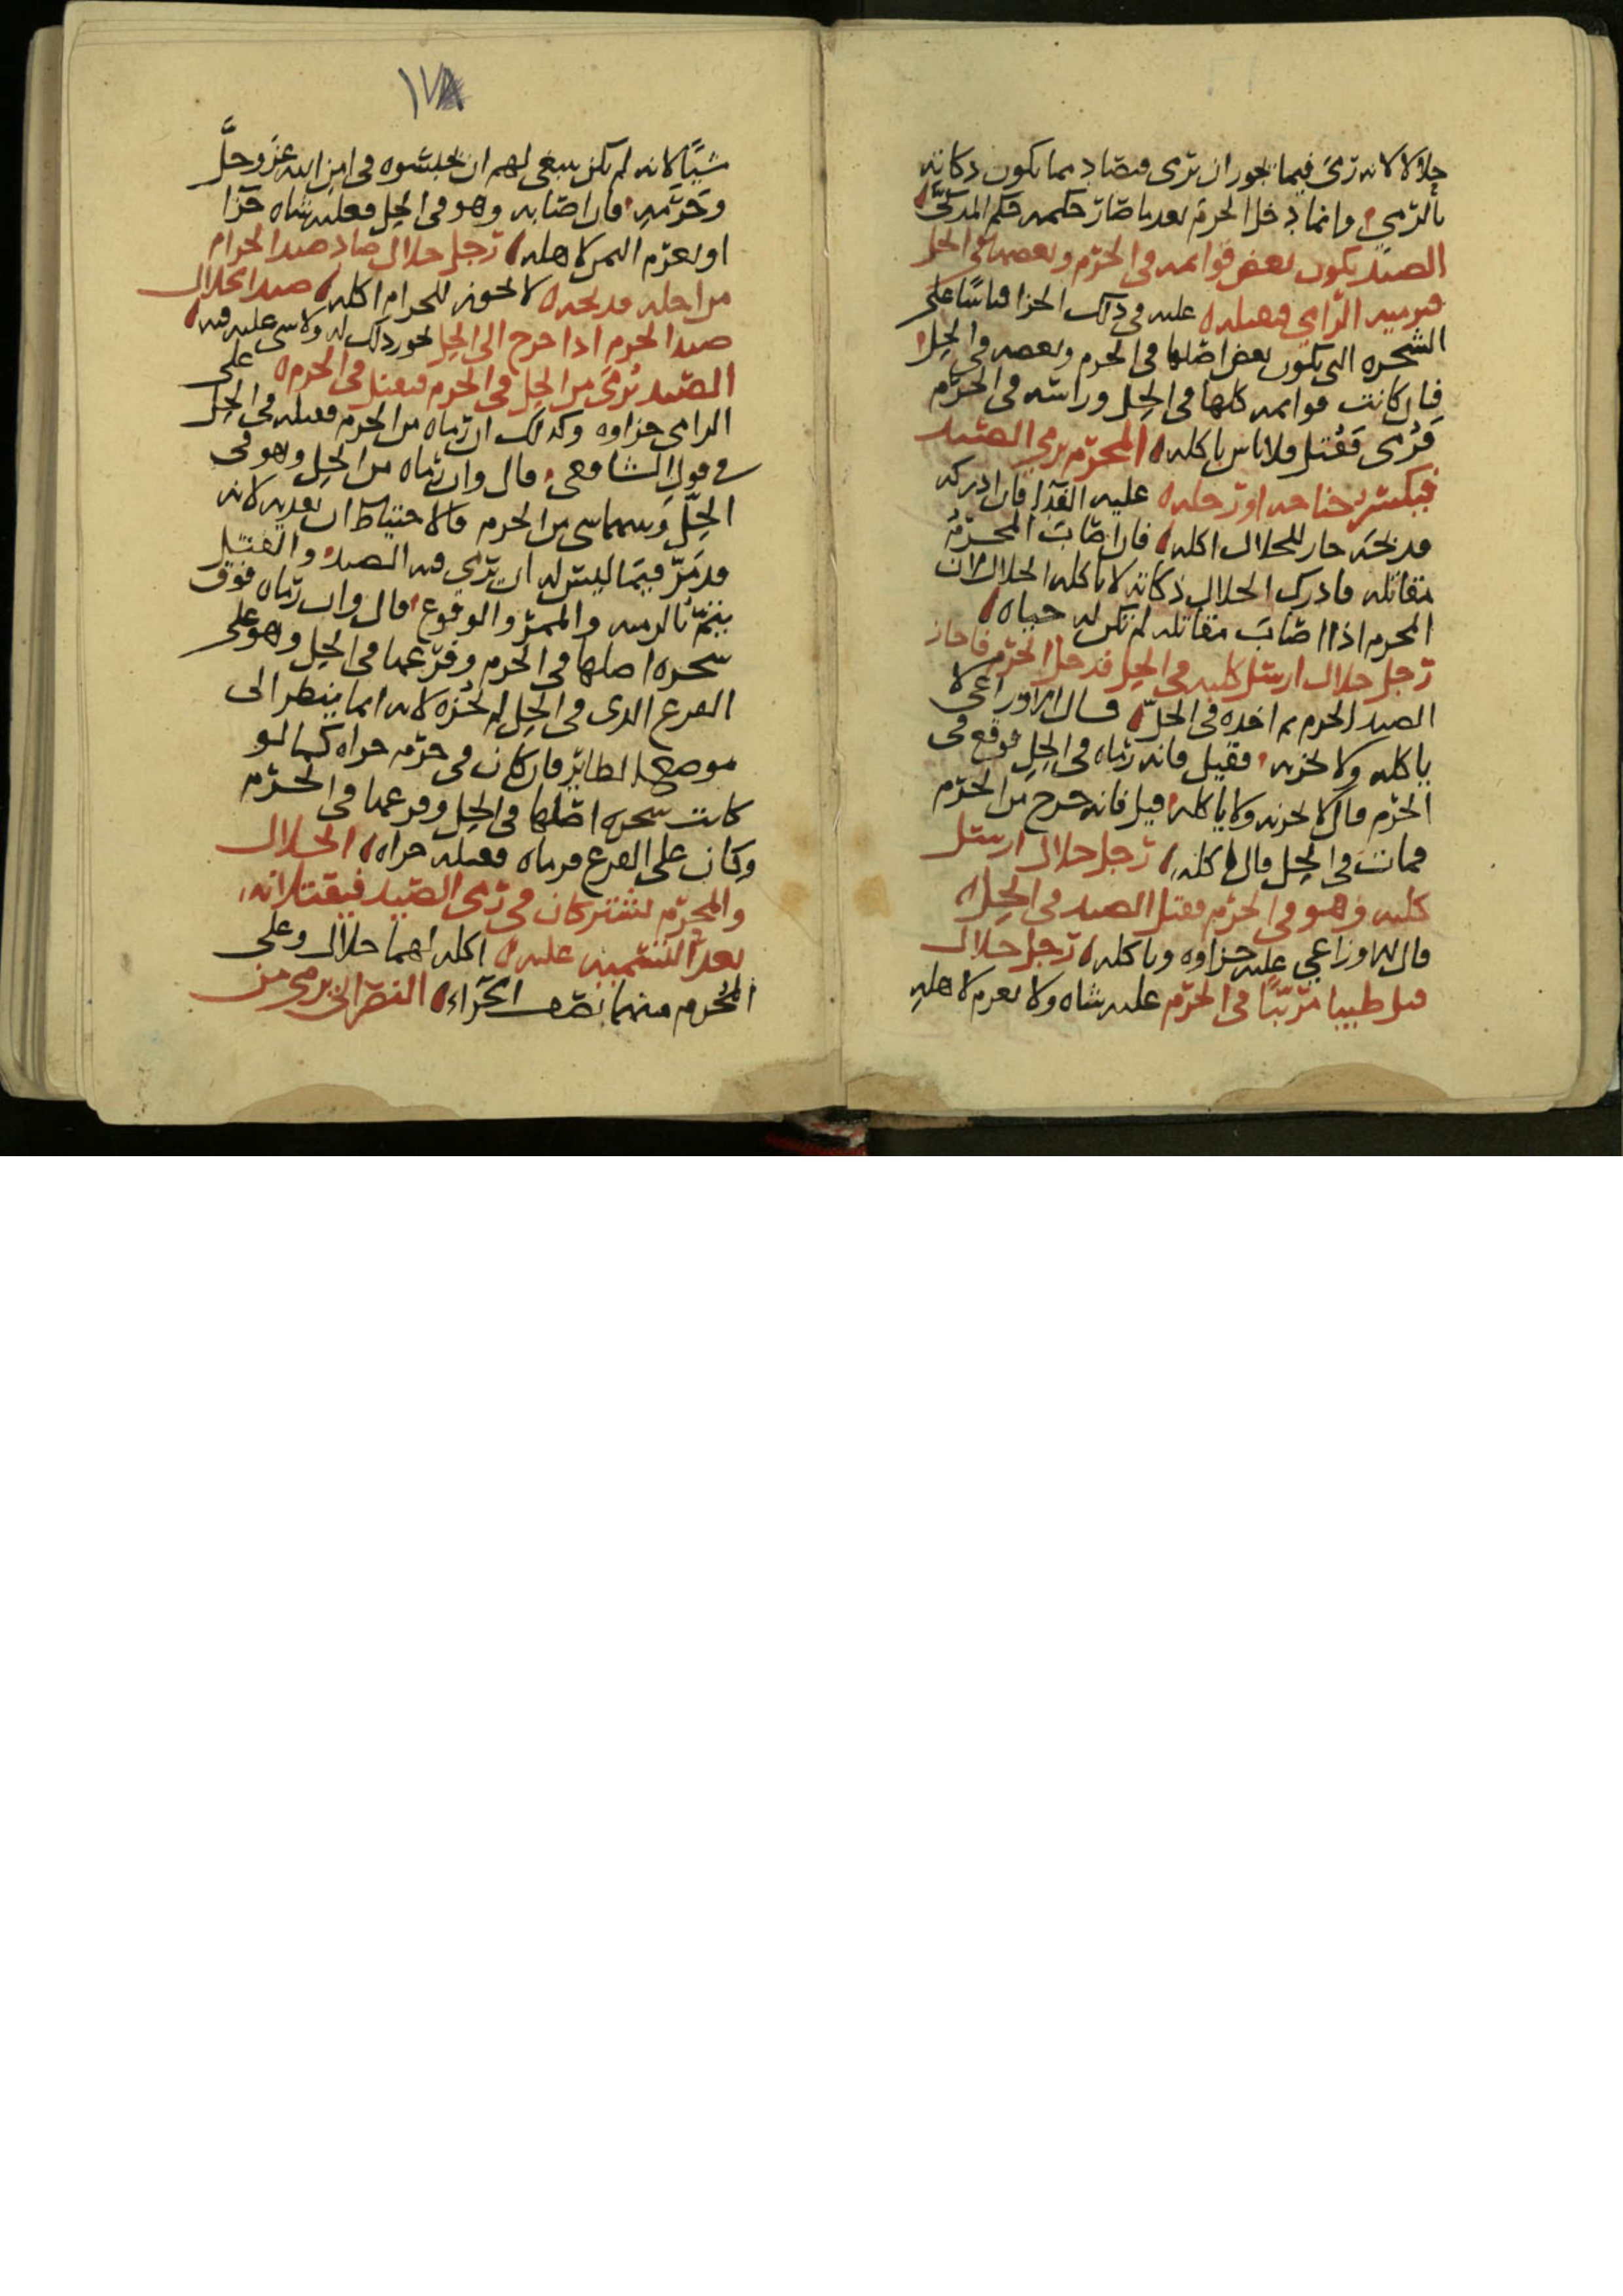 حلالا لانه رمى فيما يجوز ان يرمى فيصاد مما يكون ذكاته
بالرمي وانما دخل الحرم بعد ما صار حكمه حكم المذكى
الصيد يكون بعض قوائمه في الحرم وبعضها في الحل
فيرميه الرامي فيقتله عليه في ذلك الجزا قياسا على
الشجره التي يكون بعض اصلها في الحرم وبعضه في الحل
فان كانت قوائمه كلها في الحل وراسه في الحرم
فرمى فقتل فلا باس باكله المحرم يرمي الصيد
فيكسر جناحه او رجله عليه الفدا فان ادركه
فذبحه جاز للحلال اكله فان اصاب المحرم
مقاتله فادرك الحلال ذكاته لا ياكله الحلال لان
المحرم اذا اصاب مقاتله لم تكن له حياه
رجل حلال ارسل كلبه في الحل فدخل الحرم فاجاز
الصيد الحرم ثم اخذه في الحل قال الاوزاعي لا
ياكله ولا يجزيه فقيل فانه رماه في الحل فوقع في
الحرم قال لا يجزيه ولا ياكله قيل فانه خرج من الحرم
فمات في الحل قال اكله رجل حلال ارسل
كلبه وهو في الحرم فقتل الصيد في الحل
قال الاوزاعي عليه جزاوه وياكله رجل حلال
قتل طبيا مربيا في الحرم عليه شاه ولا يغرم لاهله
١٧٨
شيا لانه لم يكن ينبغي لهم ان يحبسوه في امن الله عز وجل
وحرمه فان اصابه وهو في الحل فعليه شاه جزا
او يغرم الثمن لاهله رجل حلال صاد صيد الحرام
من اجله فذبحه لا يجوز للحرام اكله صيد الحلال
صيد الحرم اذا خرج الى الحل يجوز ذلك له ولا شي عليه فيه
الصيد يرمى من الحل في الحرم فيقتل في الحرم على
الرامي جزاوه وكذلك ان رماه من الحرم فقتله في الحل
في قول الشافعي قال وان رماه من الحل وهو في
الحل وبينهما شي من الحرم فالاحتياط ان يفديه لانه
قد مر فيما ليس له ان يرمي فيه الصيد والقتل
يتم بالرميه والممر والوقوع قال وان رماه فوق
شجره اصلها في الحرم وفرعها في الحل وهو على
الفرع الذي في الحل لم يجزه لانه انما ينظر الى
موضع الطائر فان كان في حرم جزاه كما لو
كانت شجره اصلها في الحل وفرعها في الحرم
وكان على الفرع فرماه فقتله جزاه الحلال
والمحرم يشتركان في رمي الصيد فيقتلانه
بعد التسميه عليه اكله لهما حلال وعلى
المحرم منهما نصف الجزاء النصراني يرمي من